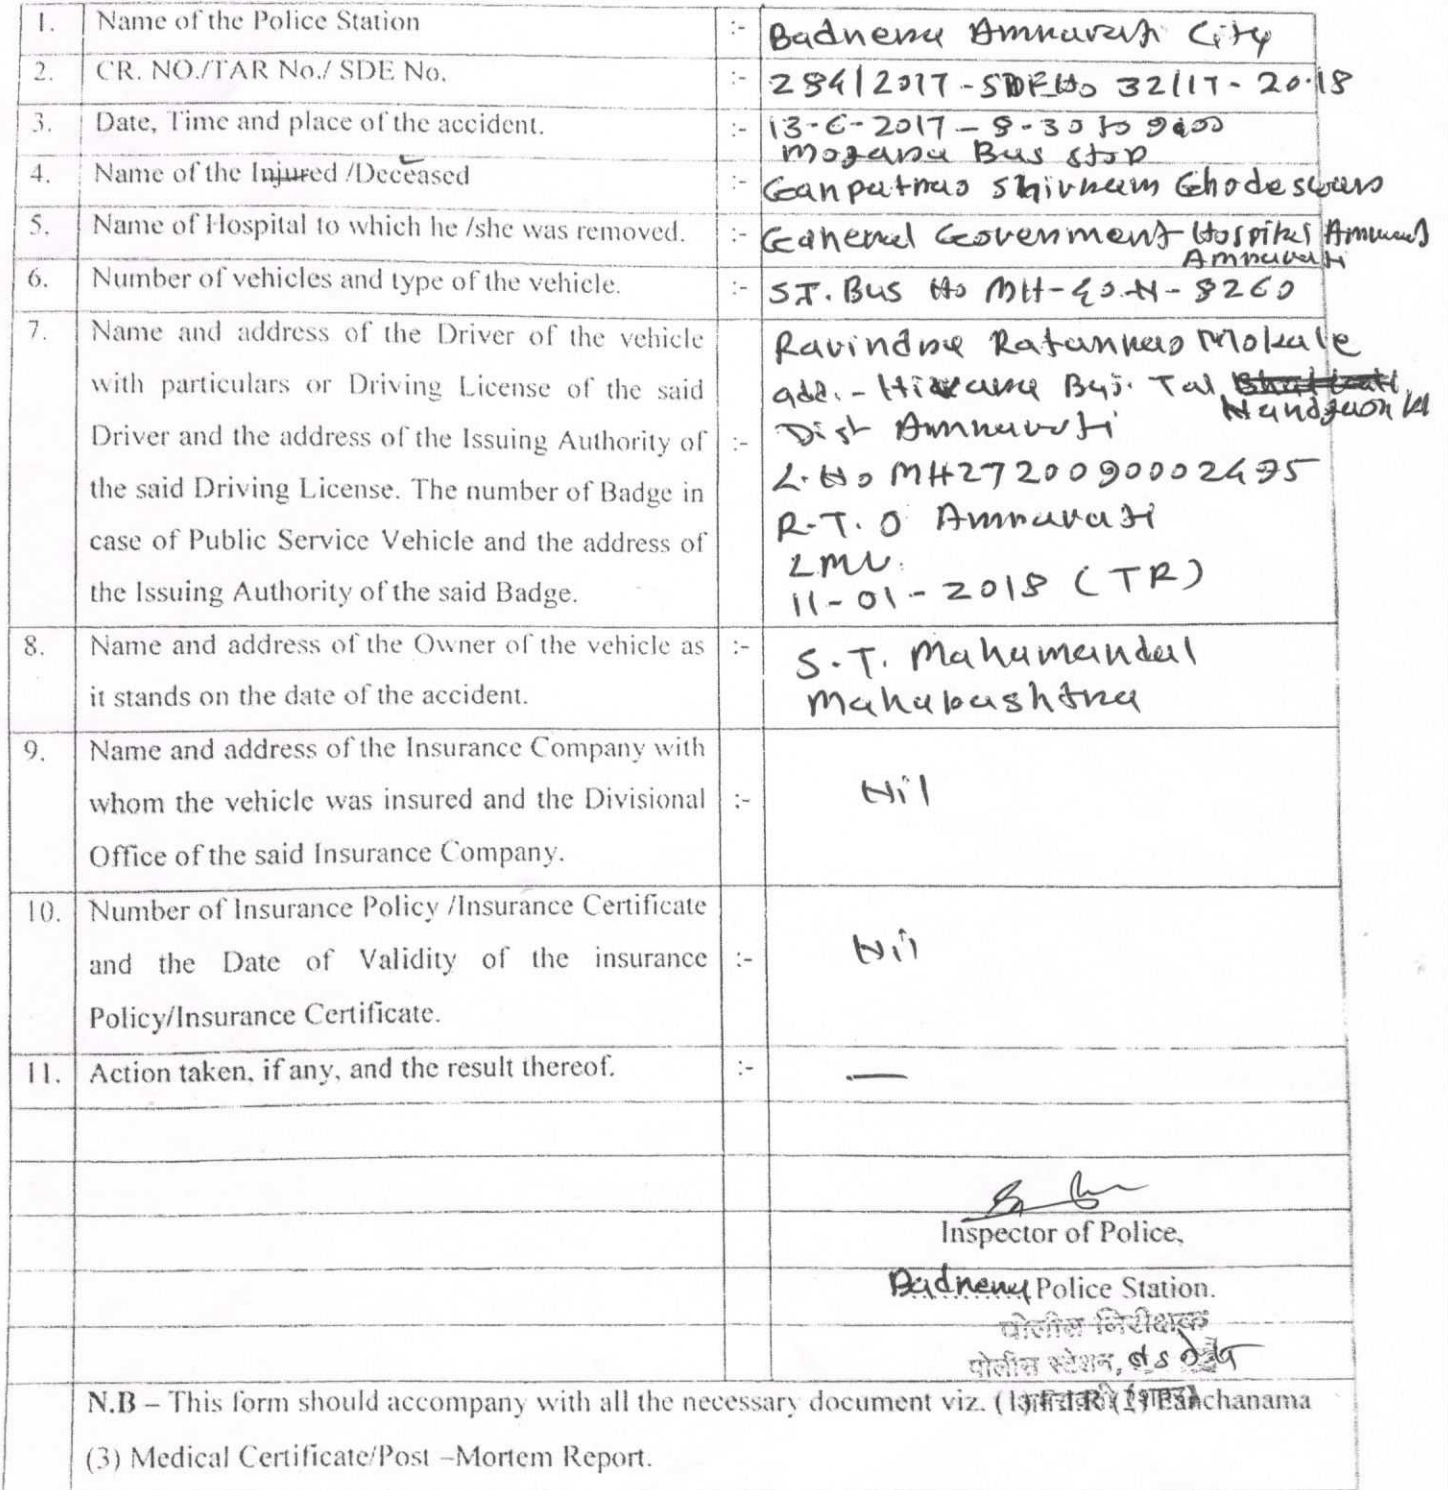 1. Name of the Police Station :- Badnera Amravati City
2. CR. NO./TAR No./ SDE No. :- 284/2017-SDENo 32/17-2018
3. Date, Time and place of the accident. :- 13-6-2017-8-30 to 9:00
Mozana Bus stop
4. Name of the Injured /Deceased :- Ganpatrao Shivram Ghodeswar
5. Name of Hospital to which he /she was removed. :- General Government Hospital Amravati
Amravati
6. Number of vehicles and type of the vehicle. :- S.T. Bus No MH-40.N-8260
7. Name and address of the Driver of the vehicle Ravindra Ratanrao Mokale
with particulars or Driving License of the said add.- Tal.
Nandgaon kh
Driver and the address of the Issuing Authority of :- Dist Amravati
the said Driving License. The number of Badge in L.No MH2720090002495
case of Public Service Vehicle and the address of R.T.O Amravati
LMV.
the Issuing Authority of the said Badge. 11-01-2018 (TR)
8. Name and address of the Owner of the vehicle as :- S.T. Mahamandal
it stands on the date of the accident. Maharashtra
9. Name and address of the Insurance Company with
whom the vehicle was insured and the Divisional :- Nil
Office of the said Insurance Company.
10. Number of Insurance Policy /Insurance Certificate
and the Date of Validity of the insurance :- Nil
Policy/Insurance Certificate.
11. Action taken, if any, and the result thereof. :- —
Inspector of Police,
Badnera Police Station.
पोलीस निरीक्षक
पोलीस स्टेशन, बडनेरा
N.B – This form should accompany with all the necessary document viz. (1) F.I.R (2) Panchanama
(3) Medical Certificate/Post –Mortem Report.